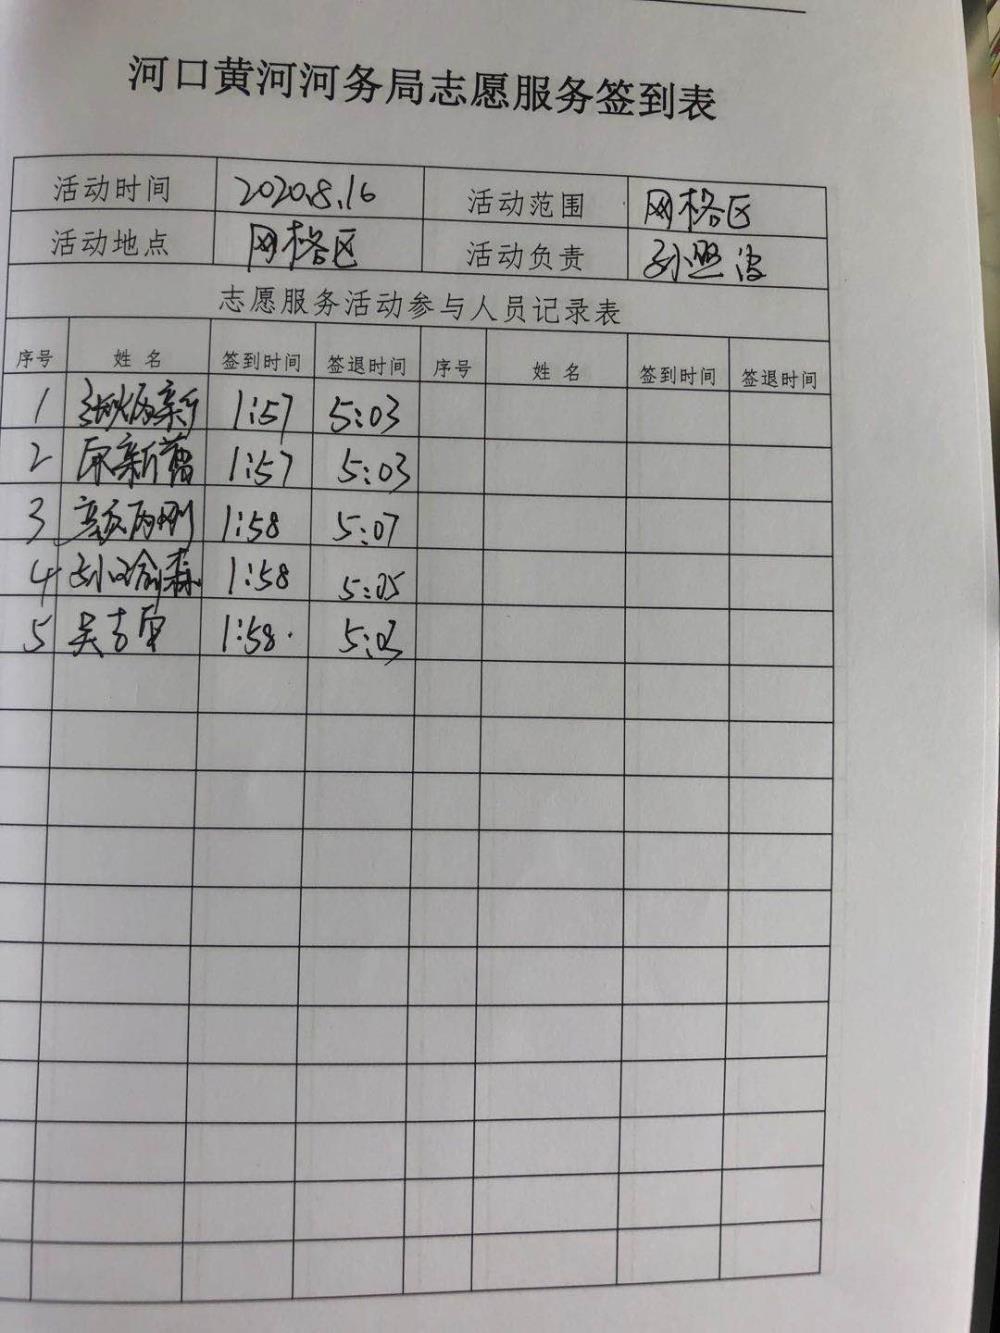 河口黄河河务局志愿服务签到表
活动时间 2020.8.16 活动范围 网格区
活动地点 网格区 活动负责 孙照波
志愿服务活动参与人员记录表
序号 姓名 签到时间 签退时间 序号 姓名 签到时间 签退时间
1 1:57 5:03
2 1:57 5:03
3 1:58 5:07
4 1:58 5:05
5 1:58 5:03